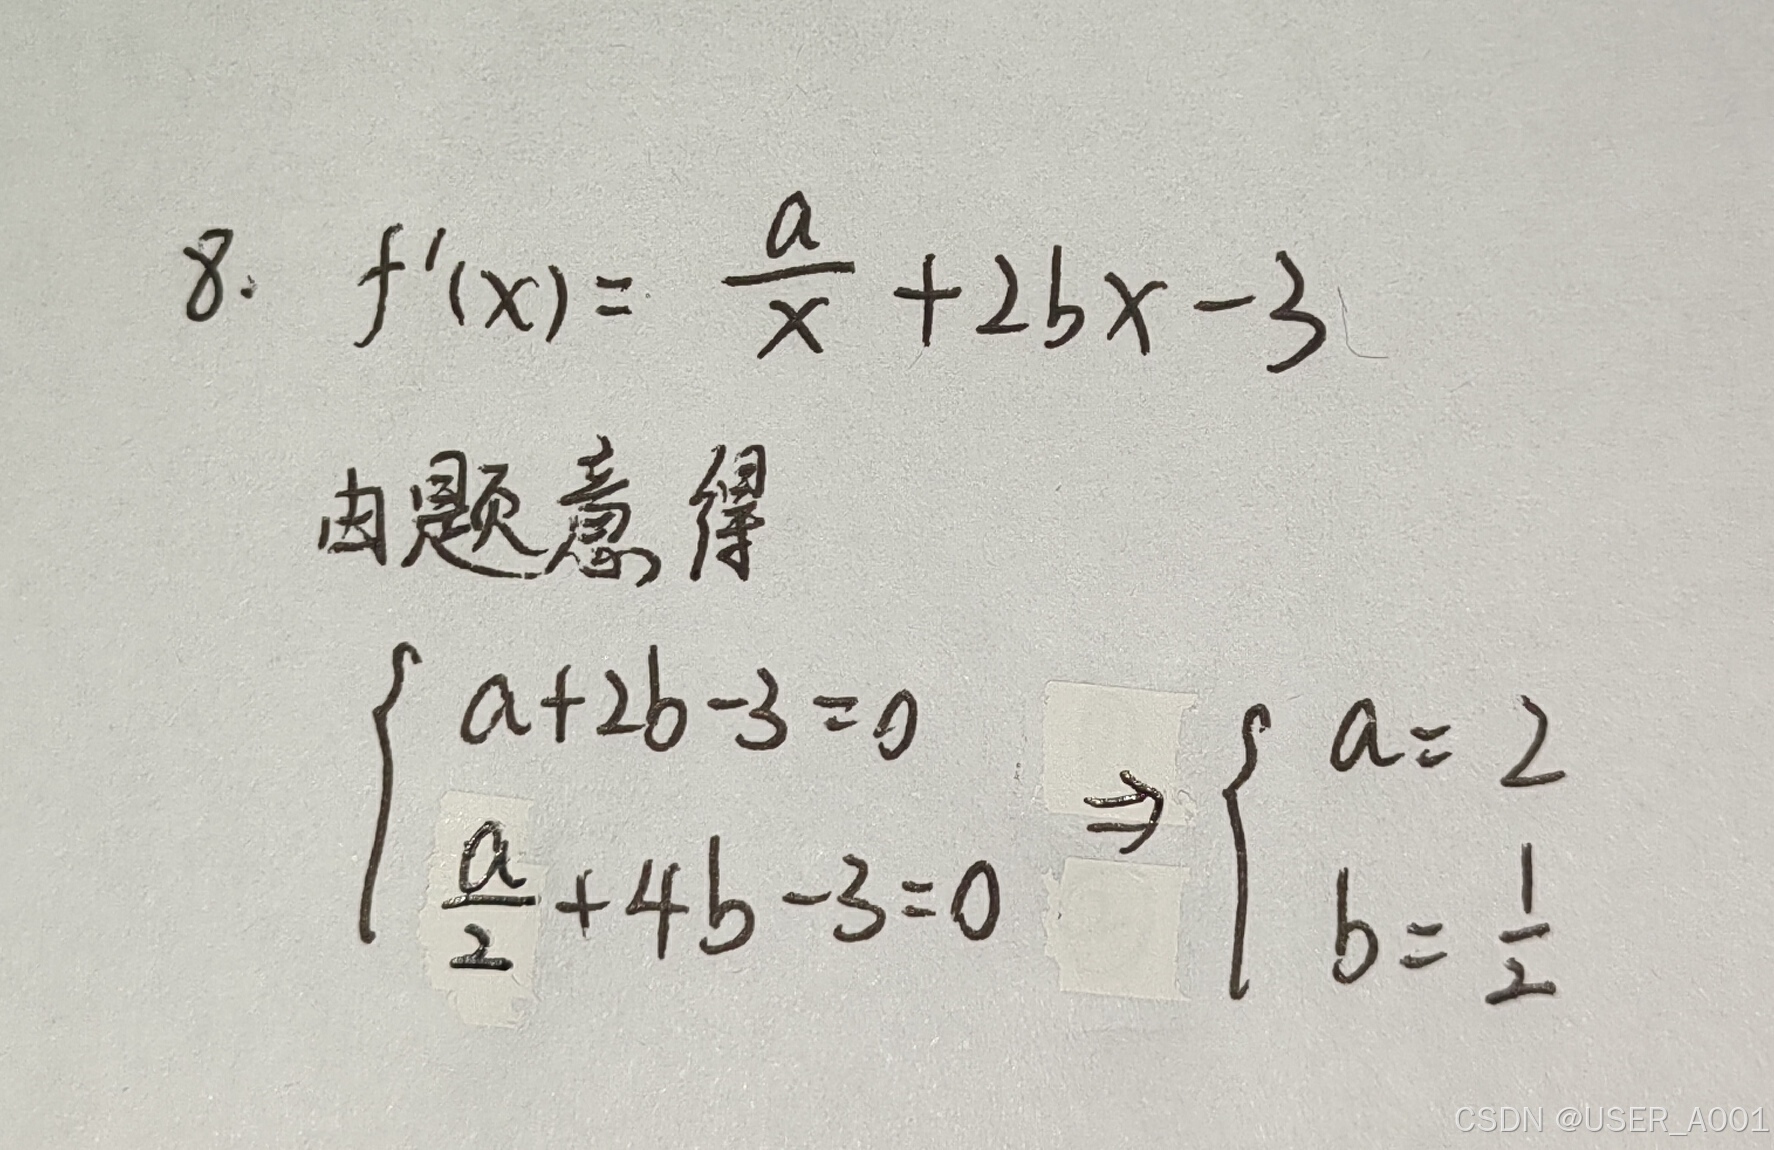 8. f'(x) = a/x + 2bx - 3
由题意得
{ a+2b-3=0
a/2 +4b-3=0
⇒ { a= 2
b= 1/2
CSDN @USER_A001